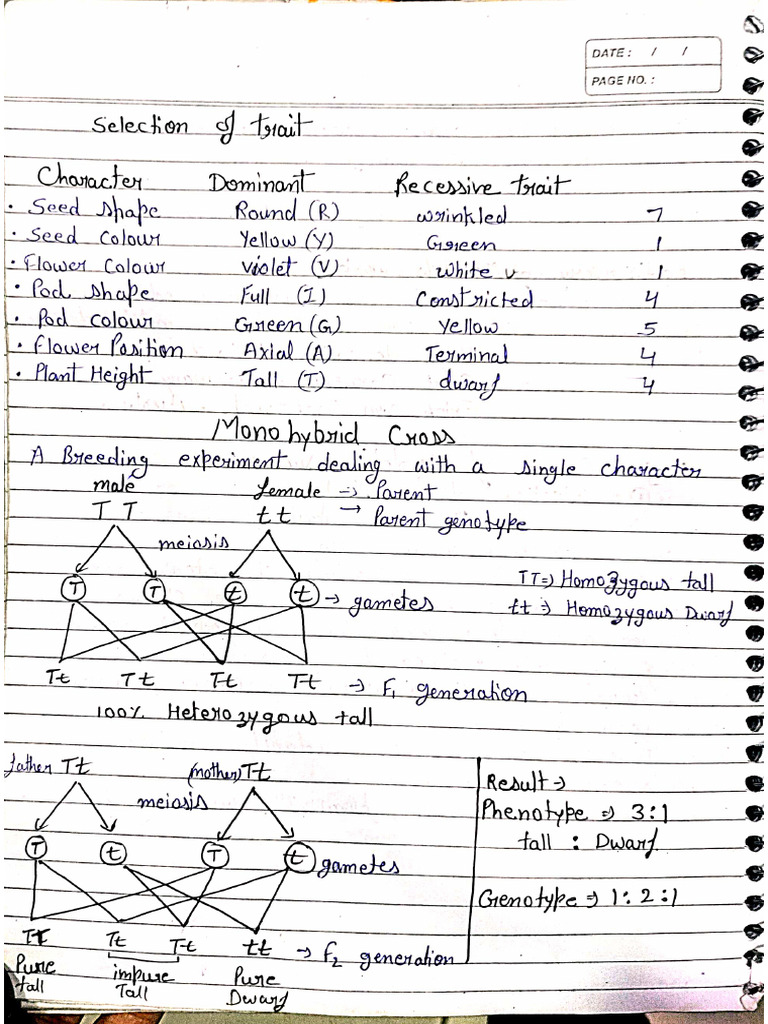 DATE: / /
PAGE NO.:
Selection of trait
Character Dominant Recessive trait
• Seed shape Round (R) wrinkled 7
• Seed colour Yellow (Y) Green 1
• Flower Colour violet (V) white v 1
• Pod shape Full (I) Constricted 4
• Pod colour Green (G) Yellow 5
• Flower Position Axial (A) Terminal 4
• Plant Height Tall (T) dwarf 4
Mono hybrid Cross
A Breeding experiment dealing with a single character
male female → Parent
T T t t → Parent genotype
meiosis
T T t t → gametes
TT ⇒ Homozygous tall
tt ⇒ Homozygous Dwarf
Tt Tt Tt Tt → F1 generation
100% Heterozygous tall
father Tt (mother) Tt
meiosis
T t T t gametes
TT Tt Tt tt → F2 generation
Pure tall impure Tall Pure Dwarf
Result →
Phenotype ⇒ 3:1
tall : Dwarf
Genotype ⇒ 1:2:1